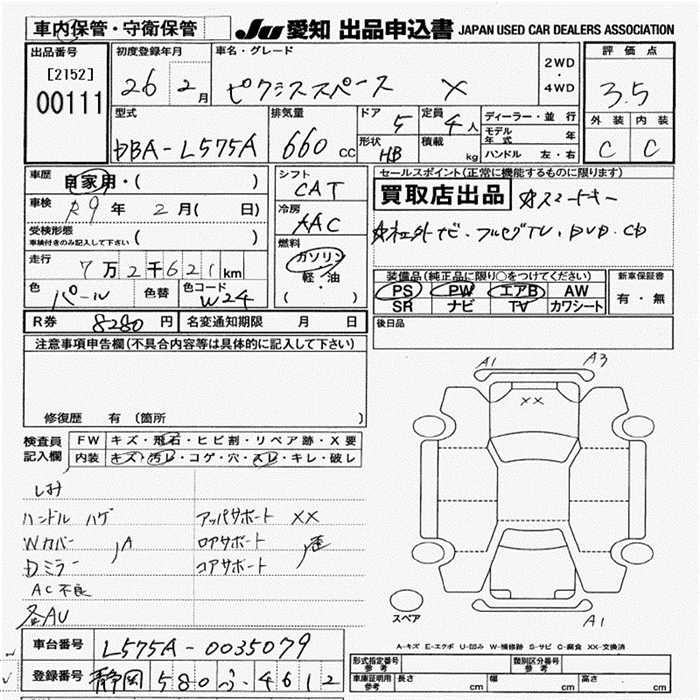 車内保管・守衛保管
JU 愛知 出品申込書 JAPAN USED CAR DEALERS ASSOCIATION
出品番号 [2152] 00111
初度登録年月 26 2月
車名・グレード ピクシススペース X
2WD・4WD
評価点 3.5
外装 C 内装 C
型式 DBA-L575A
排気量 660 cc
ドア 5
形状 HB
定員 4人
積載 kg
ディーラー・並行
モデル年式 年
ハンドル 左・右
車歴 自家用・( )
車検 R9年 2月( 日)
受検形態 車検付きのみ記入して下さい ( )
走行 7万2千621km
色 パール 色替 色コード W24
シフト CAT
冷房 AAC
燃料 ガソリン 軽・油 ( )
セールスポイント(正常に機能するものに限ります)
買取店出品 スマートキー
社外ナビ・フルセグTV、DVD、CD
装備品(純正品に限り○をつけてください)
PS PW エアB AW
SR ナビ TV カワシート
新車保証書 有・無
R券 8280円 名変通知期限 月 日
後日品
注意事項申告欄(不具合内容等は具体的に記入して下さい)
修復歴 有 (箇所 )
検査員記入欄
FW キズ・飛石・ヒビ割・リペア跡・X要
内装 キズ・汚レ・コゲ・穴・スレ・キレ・破レ
シミ
ハンドル ハゲ アッパサポート XX
Wカバー A ロアサポート
Dミラー コアサポート
AC不良
各AU
A1 A3
XX
スペア
A1
車台番号 L575A-0035079
登録番号 静岡 580 ふ 4612
A-キズ E-エクボ U-凹み W-補修跡 S-サビ C-腐食 XX-交換済
形式指定番号 参考 類別区分番号 参考
車庫証明用 参考 長さ cm 幅 cm 高さ cm